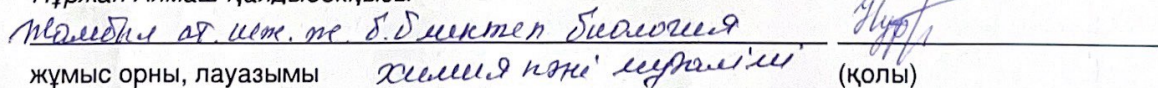 Жамбыл ат. шж. ж. б. б мектеп биология
жұмыс орны, лауазымы химия пәні мұғалімі (қолы)